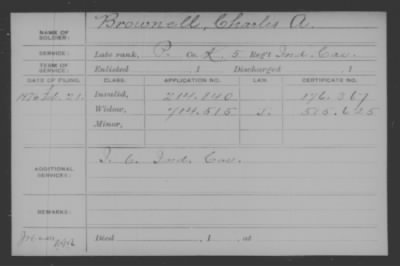 NAME OF SOLDIER: Brownell, Charles A.
SERVICE: Late rank, P. Co. L, 5 Reg't Ind. Cav.
TERM OF SERVICE: Enlisted , 1 Discharged , 1
DATE OF FILING. CLASS. APPLICATION NO. LAW. CERTIFICATE NO.
1876 21. Invalid, 214.840 176.367
Widow, 714.515 515.625
Minor,
ADDITIONAL SERVICES: Ind. Cav.
REMARKS:
Died , 1 , at